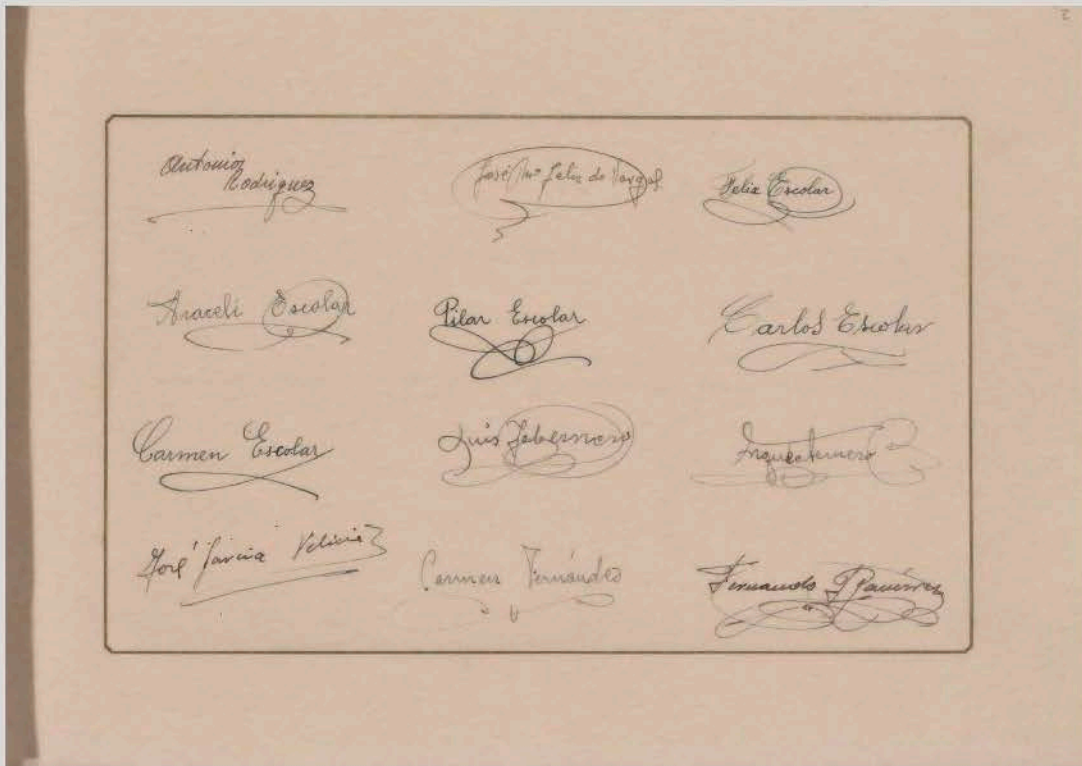 2
Antonio
Rodriguez
José Mª Feliz de Vargas
Felix Escolar
Araceli Escolar
Pilar Escolar
Carlos Escolar
Carmen Escolar
Luis Tabernero
José Garcia
Carmen Fernández
Fernando Ramírez